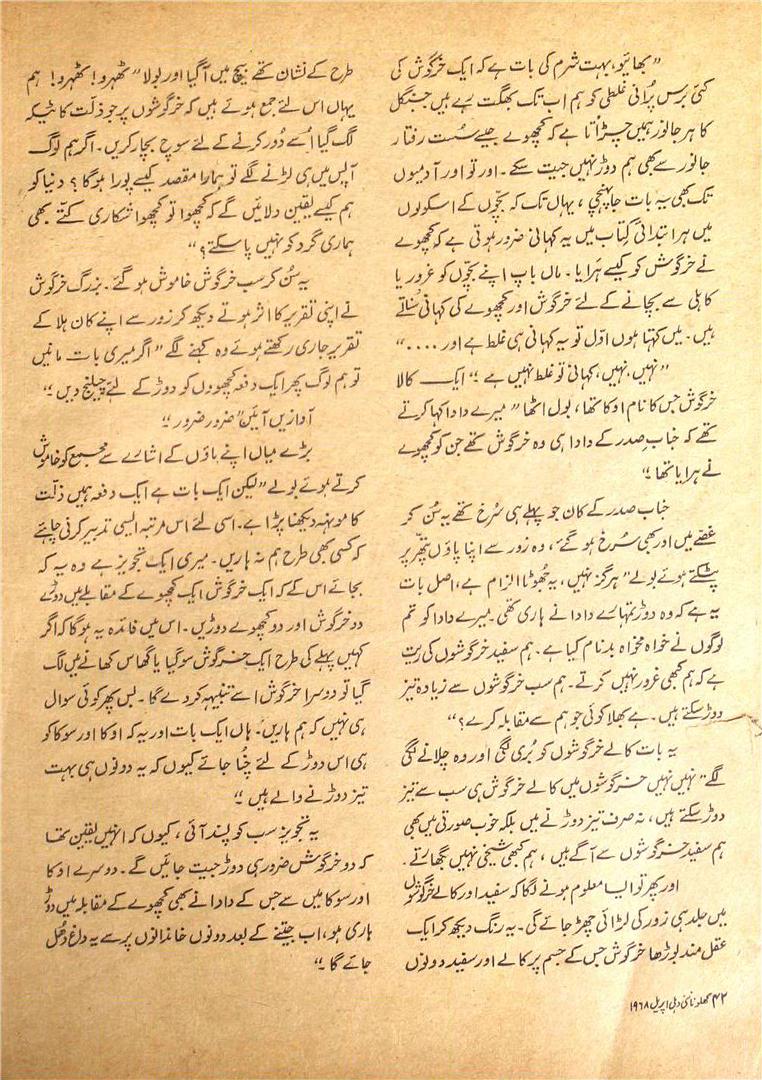 ”بھائیو، بہت شرم کی بات ہے کہ ایک خرگوش کی
کئی برس پرانی غلطی کو ہم اب تک بھگت رہے ہیں جنگل
کا ہر جانور ہمیں چڑاتا ہے کہ کچھوے جیسے سُست رفتار
جانور سے بھی ہم دوڑ نہیں جیت سکے۔ اور تو اور آدمیوں
تک بھی یہ بات جا پہنچی، یہاں تک کہ بچّوں کے اسکولوں
میں ہر ابتدائی کتاب میں یہ کہانی ضرور ہوتی ہے کہ کچھوے
نے خرگوش کو کیسے ہَرایا۔ ماں باپ اپنے بچّوں کو غرور یا
کاہلی سے بچانے کے لئے خرگوش اور کچھوے کی کہانی سُناتے
ہیں۔ میں کہتا ہوں اوّل تو یہ کہانی ہی غلط ہے اور ....“
”نہیں، نہیں، کہانی تو غلط نہیں ہے“ ایک کالا
خرگوش جس کا نام اوکا تھا، بول اٹھا ”میرے دادا کہا کرتے
تھے کہ جناب صدر کے دادا ہی وہ خرگوش تھے جن کو کچھوے
نے ہرایا تھا۔“
جناب صدر کے کان جو پہلے ہی سُرخ تھے یہ سُن کر
غصّے میں اور بھی سُرخ ہو گئے، وہ زور سے اپنا پاؤں پتّھر پر
پٹکتے ہوئے بولے ”ہرگز نہیں، یہ جھُوٹا الزام ہے، اصل بات
یہ ہے کہ وہ دوڑ تمہارے دادا نے ہاری تھی۔ میرے دادا کو تم
لوگوں نے خواہ مخواہ بدنام کیا ہے۔ ہم سفید خرگوشوں کی ریت
ہے کہ ہم کبھی غرور نہیں کرتے۔ ہم سب خرگوشوں سے زیادہ تیز
دوڑ سکتے ہیں۔ ہے بھلا کوئی جو ہم سے مقابلہ کرے؟“
یہ بات کالے خرگوشوں کو بُری لگی اور وہ چلانے لگی
لگے ”نہیں نہیں خرگوشوں میں کالے خرگوش ہی سب سے تیز
دوڑ سکتے ہیں، نہ صرف تیز دوڑنے میں بلکہ خوب صورتی میں بھی
ہم سفید خرگوشوں سے آگے ہیں، ہم کبھی شیخی نہیں بگھارتے۔
اور پھر تو ایسا معلوم ہونے لگا کہ سفید اور کالے خرگوشوں
میں جلد ہی زور کی لڑائی چھڑ جائے گی۔ یہ رنگ دیکھ کر ایک
عقل مند بوڑھا خرگوش جس کے جسم پر کالے اور سفید دونوں
طرح کے نشان تھے بیچ میں آ گیا اور بولا ”ٹھہرو! ٹھہرو! ہم
یہاں اس لئے جمع ہوئے ہیں کہ خرگوشوں پر جو ذلّت کا ٹیکہ
لگ گیا اُسے دُور کرنے کے لئے سوچ بچار کریں۔ اگر ہم لوگ
آپس میں ہی لڑنے لگے تو ہمارا مقصد کیسے پورا ہوگا؟ دنیا کو
ہم کیسے یقین دلائیں گے کہ کچھوا تو کچھوا شکاری کتّے بھی
ہماری گرد کو نہیں پا سکتے؟“
یہ سُن کر سب خرگوش خاموش ہو گئے۔ بزرگ خرگوش
نے اپنی تقریر کا اثر ہوتے دیکھ کر زور سے اپنے کان ہلا کے
تقریر جاری رکھتے ہوئے وہ کہنے لگے ”اگر میری بات مانیں
تو ہم لوگ پھر ایک دفعہ کچھووں کو دوڑ کے لئے چیلنج دیں۔“
آوازیں آئیں ”ضرور ضرور“
بڑے میاں اپنے پاؤں کے اشارے سے مجمع کو خاموش
کرتے ہوئے بولے ”لیکن ایک بات ہے ایک دفعہ ہمیں ذلّت
کا مونہہ دیکھنا پڑا ہے۔ اسی لئے اس مرتبہ ایسی تدبیر کرنی چاہئے
کہ کسی بھی طرح ہم نہ ہاریں۔ میری ایک تجویز ہے وہ یہ کہ
بجائے اس کے کہ ایک خرگوش ایک کچھوے کے مقابلے میں دوڑے
دو خرگوش اور دو کچھوے دوڑیں۔ اس میں فائدہ یہ ہوگا کہ اگر
کہیں پہلے کی طرح ایک خرگوش سو گیا یا گھاس کھانے میں لگ
گیا تو دوسرا خرگوش اسے تنبیہہ کر دے گا۔ بس پھر کوئی سوال
ہی نہیں کہ ہم ہاریں۔ ہاں ایک بات اور یہ کہ اوکا اور سوکا کو
ہی اس دوڑ کے لئے چُنا جائے کیوں کہ یہ دونوں ہی بہت
تیز دوڑنے والے ہیں۔“
یہ تجویز سب کو پسند آئی، کیوں کہ انہیں یقین تھا
کہ دو خرگوش ضرور ہی دوڑ جیت جائیں گے۔ دوسرے اوکا
اور سوکا میں سے جس کے دادا نے بھی کچھوے کے مقابلہ میں دوڑ
ہاری ہو، اب جیتنے کے بعد دونوں خاندانوں پر سے یہ داغ دھُل
جائے گا۔“
۴۲ کھلونا نئی دہلی اپریل ۱۹۶۸